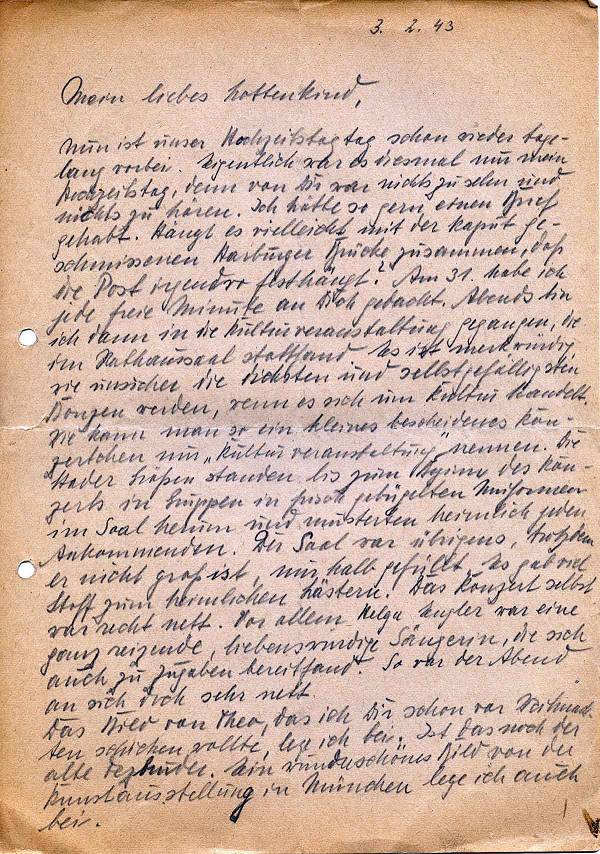 3. 2. 43
Mein liebes Lottenkind,
Nun ist unser Hochzeitstag tag schon wieder tage-
lang vorbei. Eigentlich war es diesmal nur mein
Hochzeitstag, denn von Dir war nichts zu sehn und
nichts zu hören. Ich hätte so gern einen Brief
gehabt. Hängt es vielleicht mit der kaput ge-
schmissenen Harburger Brücke zusammen, daß
die Post irgendwo festhängt? Am 31. habe ich
jede freie Minute an Dich gedacht. Abends bin
ich dann in die Kulturveranstaltung gegangen, die
im Rathaussaal stattfand. Es ist merkwürdig
wie unsicher die dicksten und selbstgefälligsten
Bonzen werden, wenn es sich um Kultur handelt.
Wie kann man so ein kleines bescheidenes Kon-
zertchen nur „Kulturveranstaltung" nennen. Die
Stader Größen standen bis zum Beginn des Kon-
zerts in Gruppen in frisch gebügelten Uniformen
im Saal herum und musterten heimlich jeden
Ankommenden. Der Saal war übrigens, trotzdem
er nicht groß ist, nur halb gefüllt. Es gab viel
Stoff zum heimlichen Lästern. Das Konzert selbst
war recht nett. Vor allem Helga Engler war eine
ganz reizende, liebenswürdige Sängerin, die sich
auch zu Zugaben bereitfand. So war der Abend
an sich doch sehr nett.
Das Bild von Theo, das ich Dir schon vor Weihnach-
ten schicken wollte, lege ich bei. Ist das noch der
alte Ein wunderschönes Bild von der
Kunstausstellung in München lege ich auch
bei.